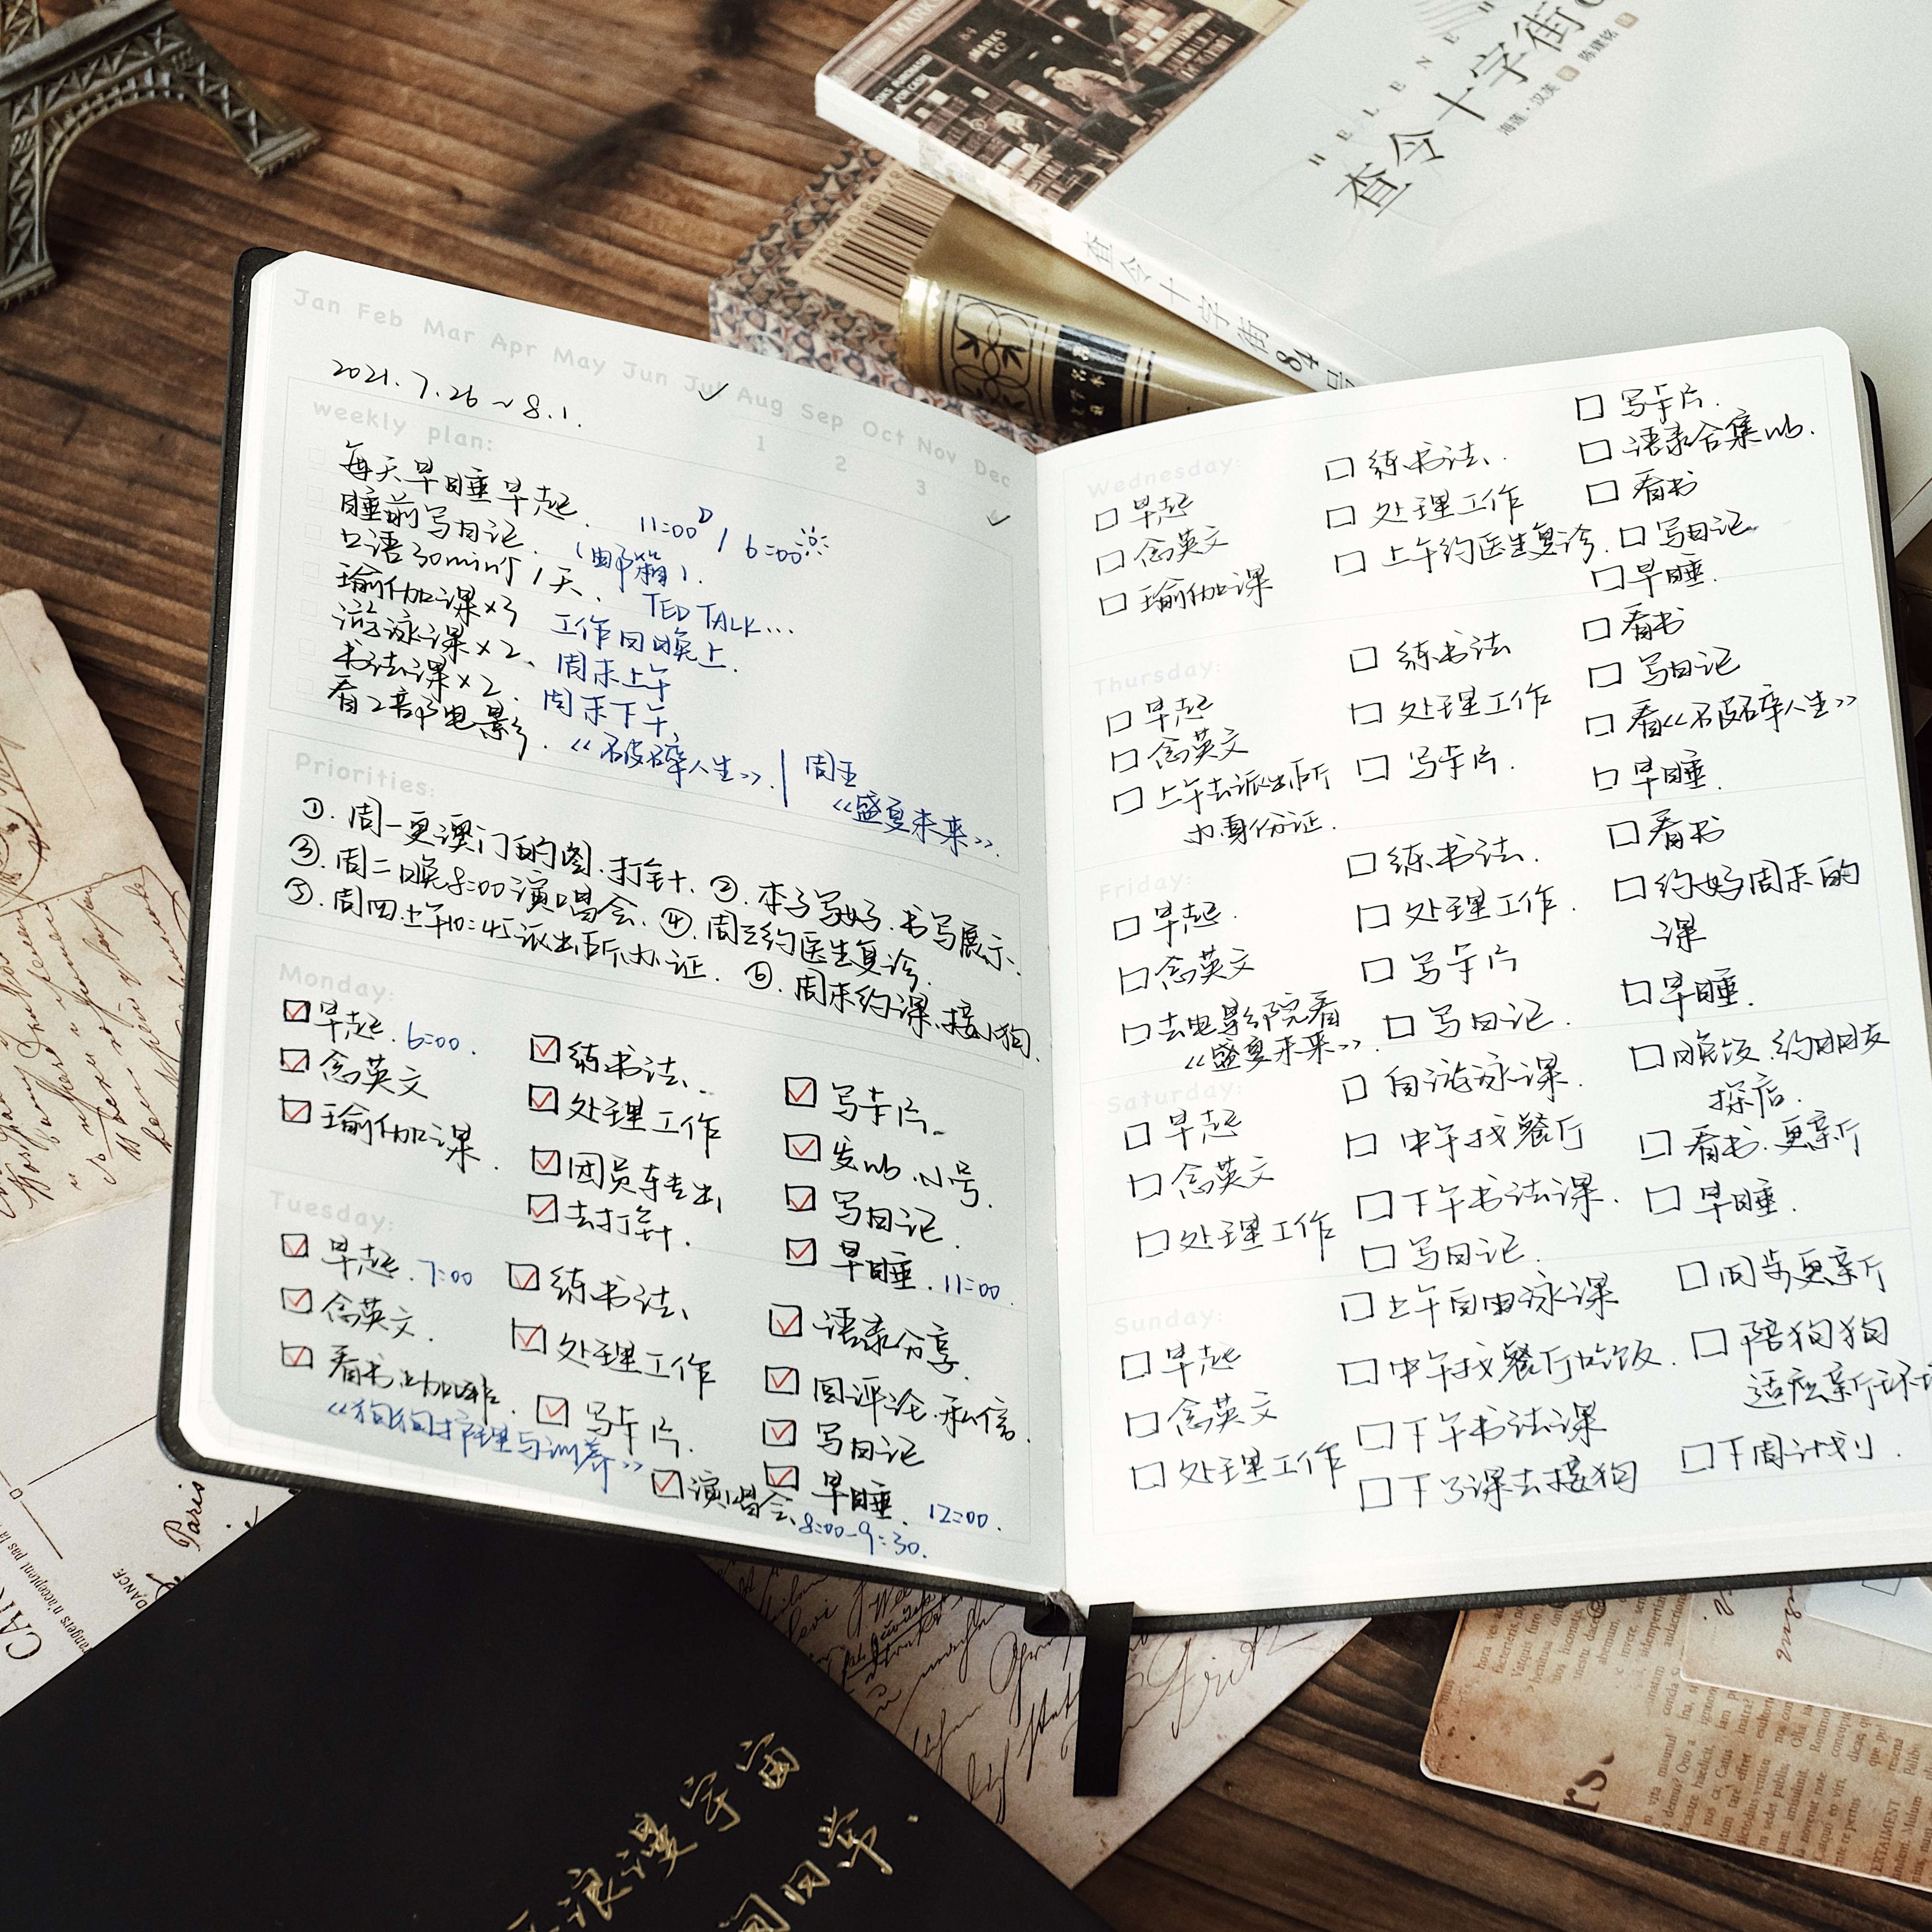 MARKS & Co
"HELENE"
查令十字街
海莲·汉芙 著 陈建铭 译
查令十字街 84号
Jan Feb Mar Apr May Jun Jul Aug Sep Oct Nov Dec
1 2 3
2021.7.26~8.1.
weekly plan:
每天早睡早起. 11:00 / 6:00
睡前写日记. (邮箱).
口语30min 1天. TED TALK...
瑜伽课×3 工作日晚上.
游泳课×2、周末上午
书法课×2. 周末下午
看2部电影. 《破碎人生》. | 周五《盛夏未来》.
Priorities:
①. 周一更澳门的图.打针. ②. 本子写好.书写展示.
③. 周二晚8:00演唱会. ④. 周三约医生复诊.
⑤. 周四上午10:45派出所办证. ⑥. 周末约课.接小狗.
Monday:
早起. 6:00.
念英文
瑜伽课.
练书法、
处理工作
团员专出
去打针.
写卡片.
发wb.小号.
写日记.
早睡. 11:00.
Tuesday:
早起. 7:00
念英文.
看书上咖啡.
《狗狗护理与训养》
练书法、
处理工作
写卡片.
演唱会、8:00-9:30.
语录分享.
回评论.私信.
写日记
早睡. 12:00.
Wednesday:
早起
念英文
瑜伽课
练书法、
处理工作
上午约医生复诊.
写卡片.
语录合集wb.
看书
写日记
早睡.
Thursday:
早起
念英文
上午去派出所
办身份证.
练书法
处理工作
写卡片.
看书
写日记
看《破碎人生》
早睡.
Friday:
早起.
念英文
去电影院看
《盛夏未来》.
练书法.
处理工作.
写卡片
写日记.
看书
约好周末的
课
早睡.
Saturday:
早起
念英文
处理工作
自游泳课.
中午找餐厅
下午书法课.
写日记.
晚饭.约朋友
探店.
看书.更新
早睡.
Sunday:
早起
念英文
处理工作
上午自由泳课
中午找餐厅吃饭.
下午书法课
下了课去接狗
同步更新
陪狗狗
适应新环境
下周计划.
浪漫宇宙
间日常.
Paris